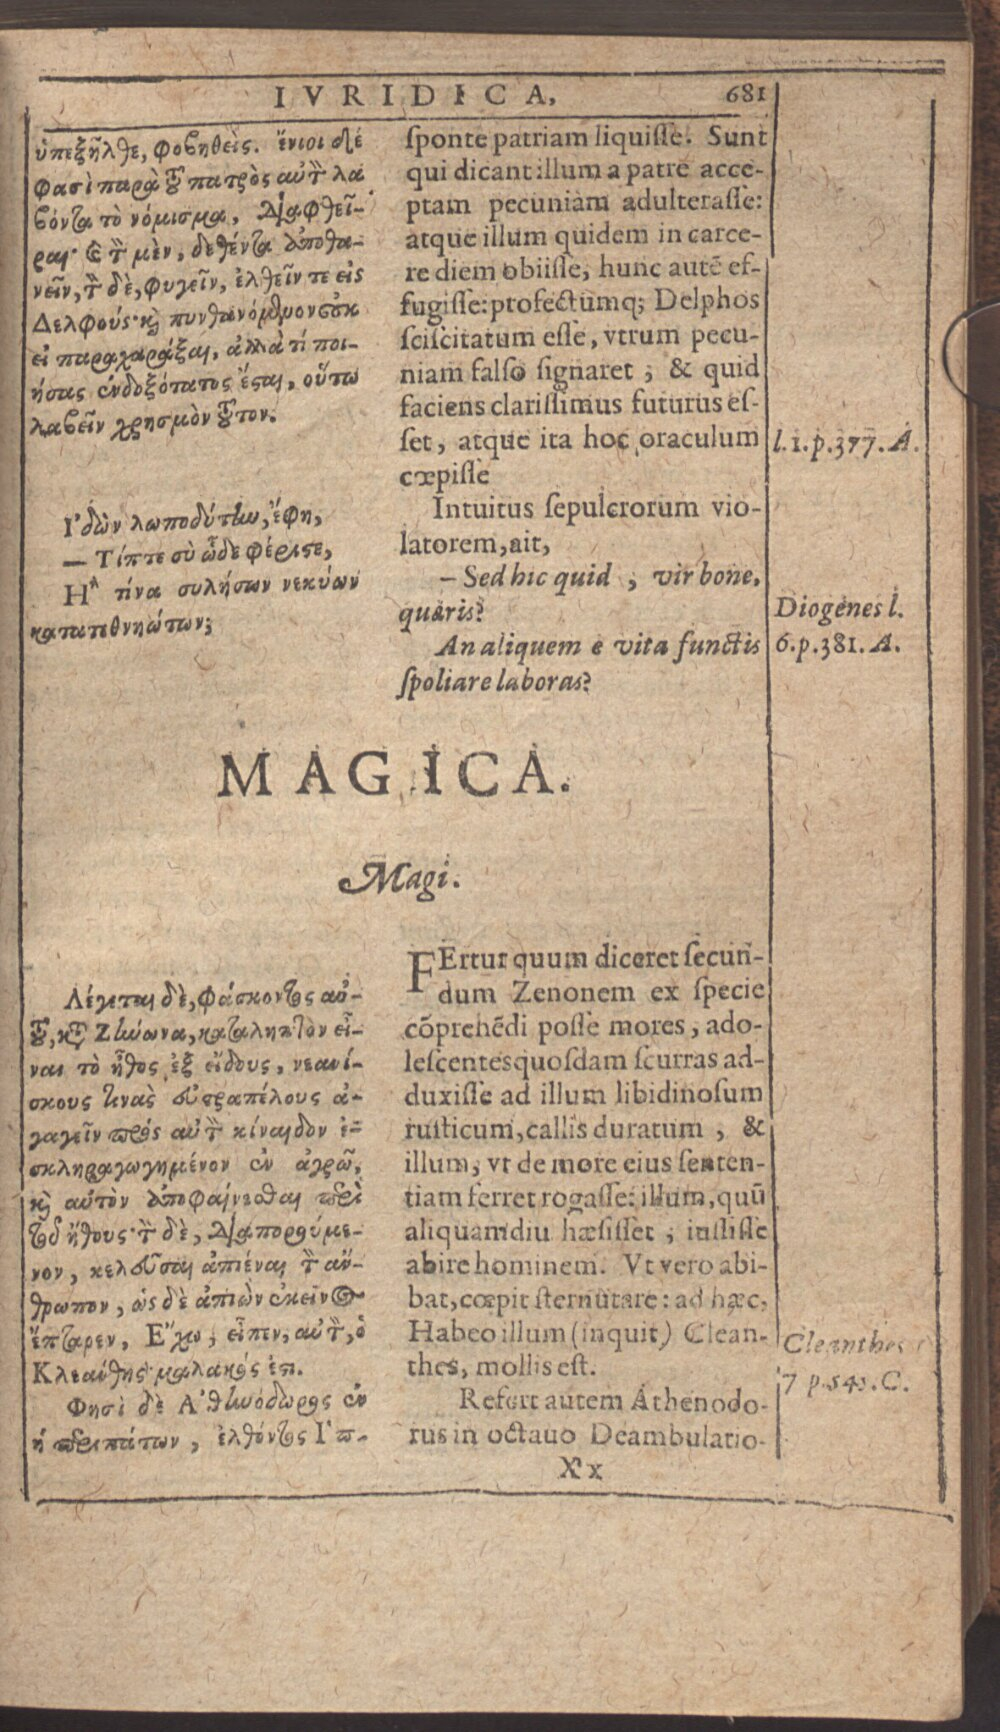 IVRIDICA,
681
ὑπεξῆλθε, φοβηθείς. ἔνιοι δέ
φασὶ παρὰ τοῦ πατρὸς αὐτὸν λα
βόντα τὸ νόμισμα, διαφθεῖ-
ραι· καὶ τὸν μὲν, δεθέντα ἀποθα-
νεῖν, τὸν δὲ, φυγεῖν, ἐλθεῖν τε εἰς
Δελφούς· καὶ πυνθανόμενον οὐκ
εἰ παραχαράξαι, ἀλλὰ τί ποι-
ήσας ἐνδοξότατος ἔσται, οὕτω
λαβεῖν χρησμὸν τοῦτον.
Ἰδὼν λωποδύτην, ἔφη,
— Τίπτε σὺ ὧδε φέριστε,
Ἤ τίνα συλήσων νεκύων
κατατεθνηώτων;
sponte patriam liquisse. Sunt
qui dicant illum a patre acce-
ptam pecuniam adulterasse:
atque illum quidem in carce-
re diem obiisse, hunc autē ef-
fugisse: profectumq; Delphos
sciscitatum esse, vtrum pecu-
niam falso signaret ; & quid
faciens clarissimus futurus es-
set, atque ita hoc oraculum
cœpisse
Intuitus sepulcrorum vio-
latorem, ait,
– Sed hic quid , vir bone,
quæris?
An aliquem e vita functis
spoliare laboras?
l. 1. p. 377. A.
Diogenes l.
6. p. 381. A.
MAGICA.
Magi.
Λέγεται δὲ, φάσκοντος αὐ-
τοῦ, κατὰ Ζήνωνα, καταληπτὸν εἶ-
ναι τὸ ἦθος ἐξ εἴδους, νεανί-
σκους τινὰς εὐτραπέλους ἀ-
γαγεῖν πρός αὐτὸν κίναιδον ἐ-
σκληραγωγημένον ἐν ἀγρῷ,
καὶ αὐτὸν ἀποφαίνεσθαι περὶ
τοῦ ἤθους· τὸν δὲ, διαπορούμε-
νον, κελεῦσαι ἀπιέναι τὸν ἄν-
θρωπον, ὡς δὲ ἀπιὼν ἐκεῖνος
ἔπταρεν, Ἔχω, εἶπεν, αὐτὸν, ὁ
Κλεάνθης· μαλακός ἐστι.
Φησὶ δὲ Ἀθηνόδωρος ἐν
ή περιπάτων, ἐλθόντος Ἱπ-
FErtur quum diceret secun-
dum Zenonem ex specie
cōprehēdi posse mores, ado-
lescentes quosdam scurras ad-
duxisse ad illum libidinosum
rusticum, callis duratum , &
illum, vt de more eius senten-
tiam ferret rogasse: illum, quū
aliquamdiu hæsisset ; iussisse
abire hominem. Vt vero abi-
bat, cœpit sternutare: ad hæc,
Habeo illum (inquit) Clean-
thes, mollis est.
Refert autem Athenodo-
rus in octauo Deambulatio-
Cleanthes
7 p. 543. C.
Xx